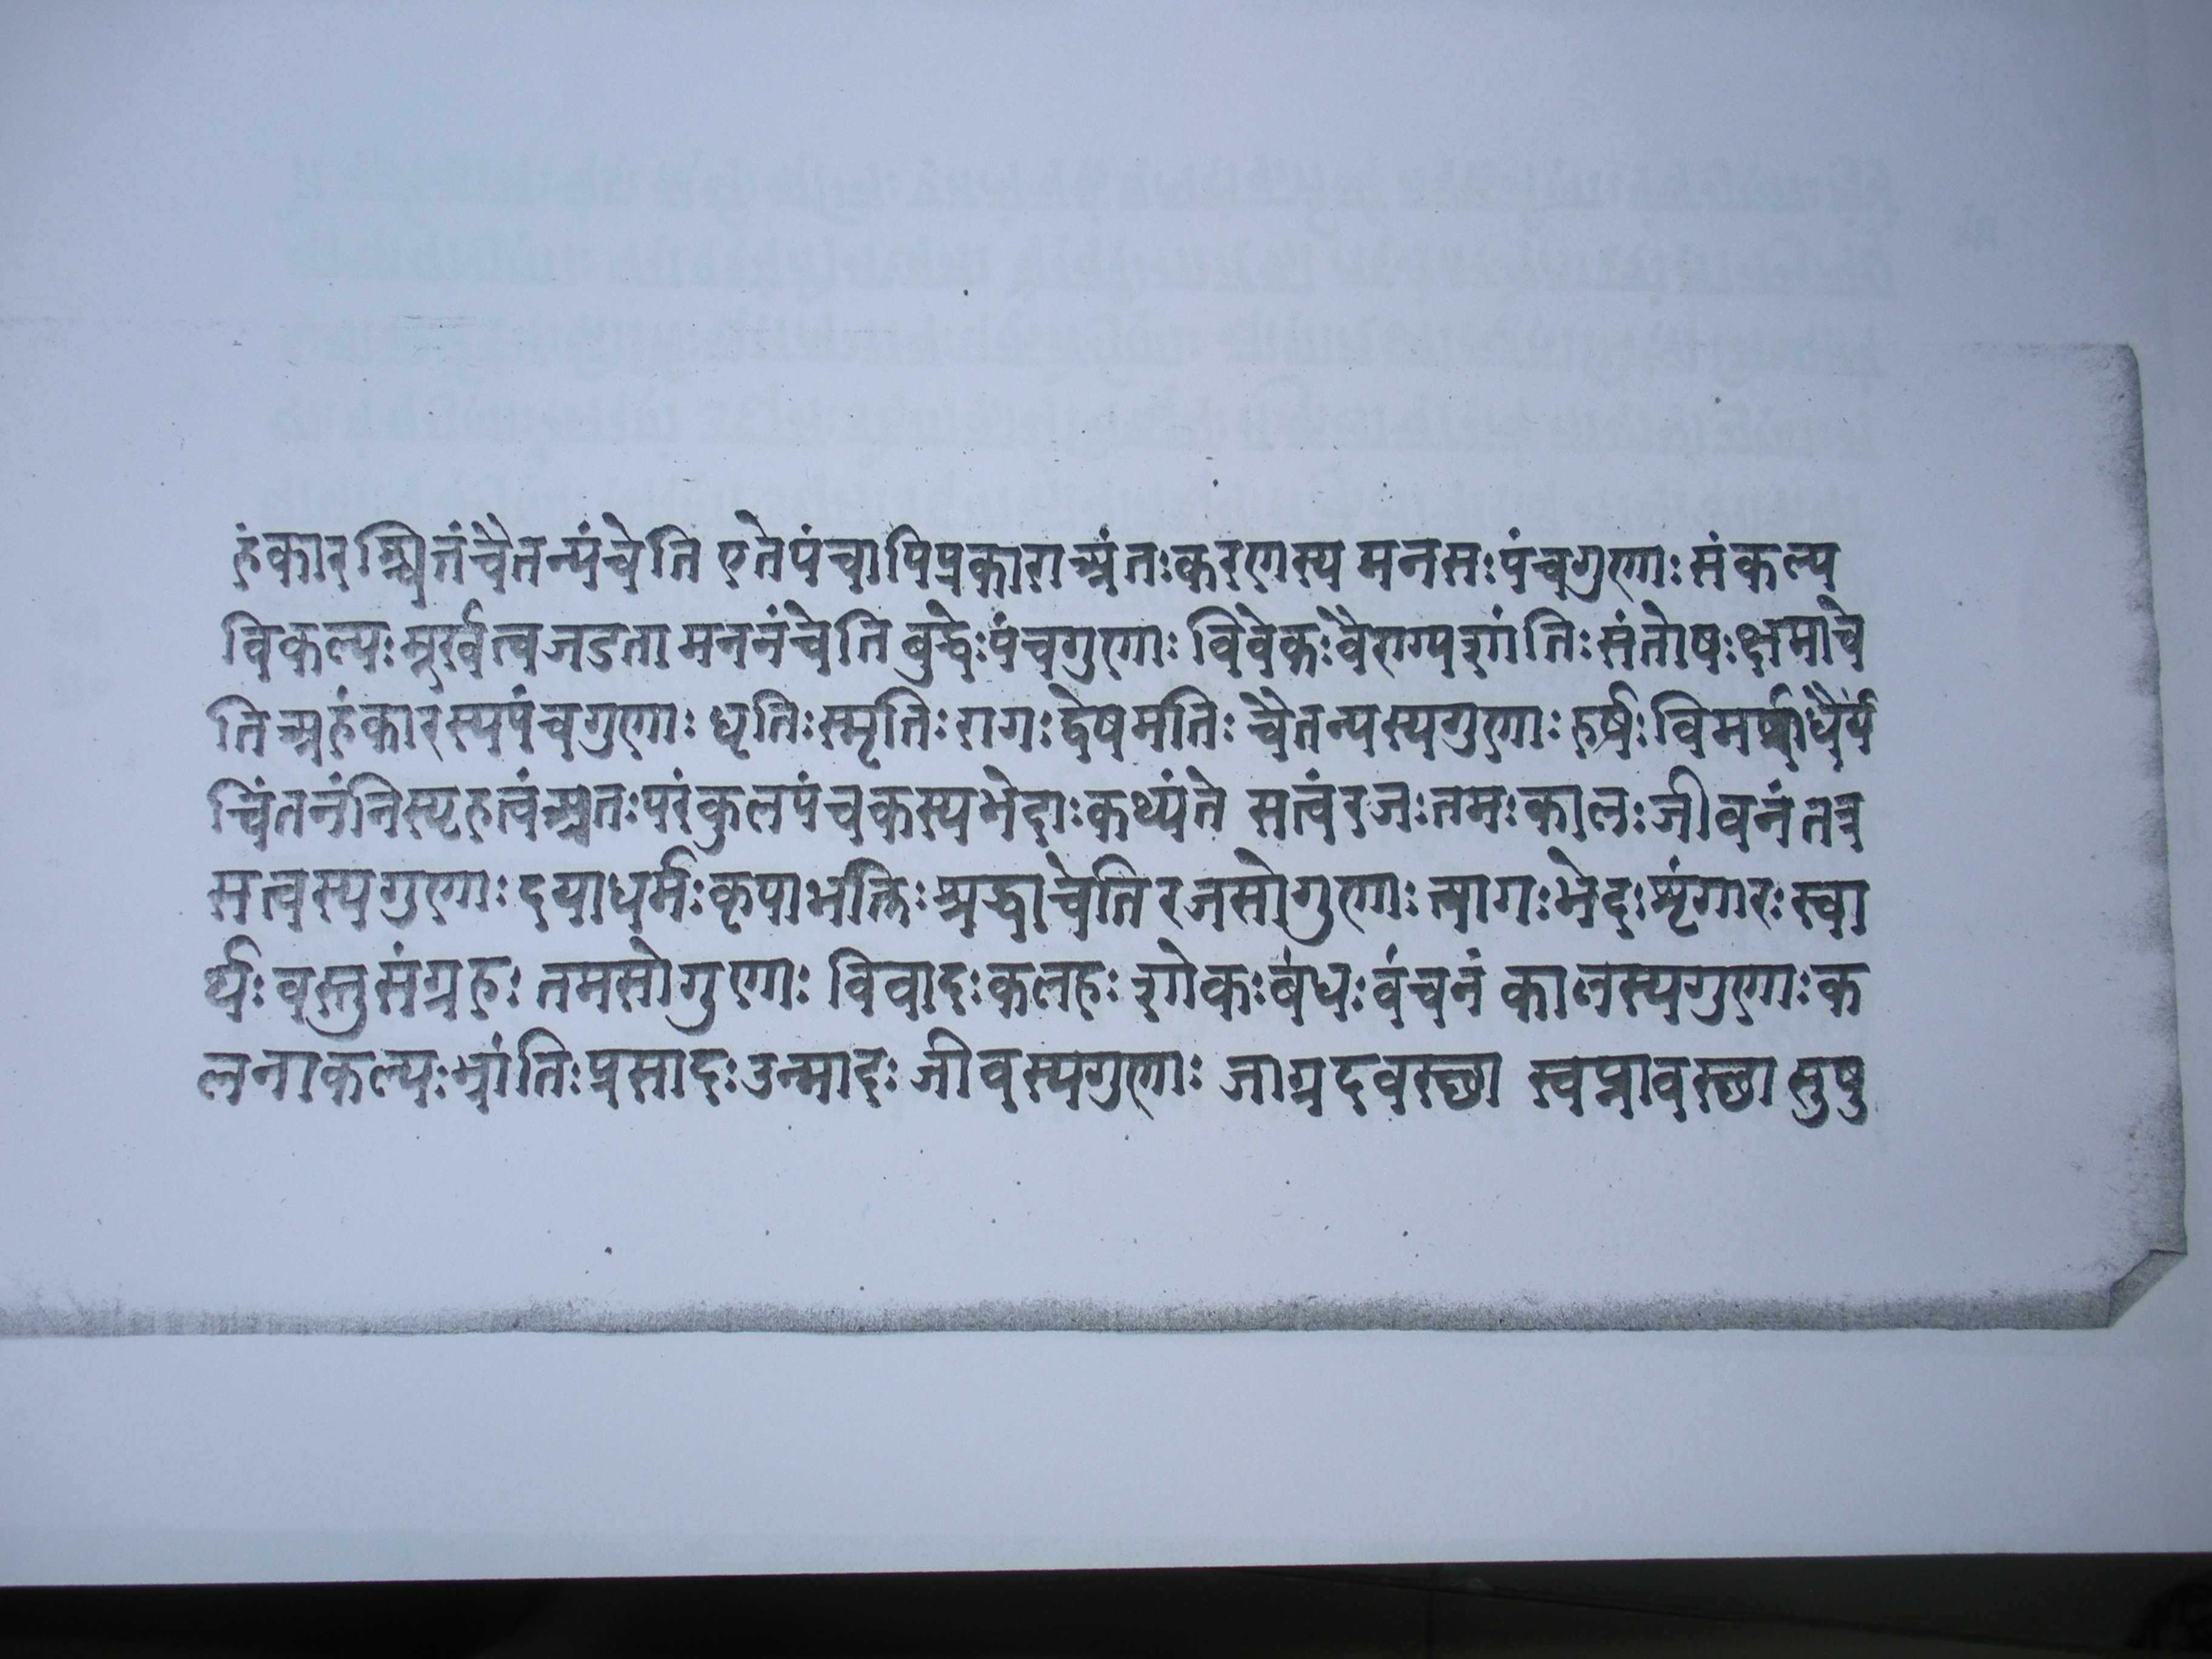 हंकारश्चितंचैतन्यंचेति एतेपंचापिप्रकारा अंतःकरणस्य मनसःपंचगुणाः संकल्प
विकल्पः मूर्खत्वजडता मननंचेति बुद्धेःपंचगुणाः विवेकःवैराग्यशांतिःसंतोषःक्षमाचे
ति अहंकारस्यपंचगुणाः धृतिःस्मृतिः रागःद्वेषमतिः चैतन्यस्यगुणाः हर्षः धैर्य
चिंतनंनिस्पृहत्वंअतःपरंकुलपंचकस्यभेदाःकथ्यंते सत्वंरजःतमःकालःजीवनं तत्र
सत्वस्यगुणाः दयाधर्मःकृपाभक्तिः श्रद्धाचेति रजसोगुणाः त्यागःभेदःशृंगारः स्वा
र्थः वस्तुसंग्रहः तमसोगुणाः विवादःकलहः शोकःबंधःवंचनं कालस्यगुणाःक
लनाकल्पःभ्रांतिःप्रसादःउन्मादः जीवस्यगुणाः जाग्रदवस्छा स्वप्नावस्छा सुषु